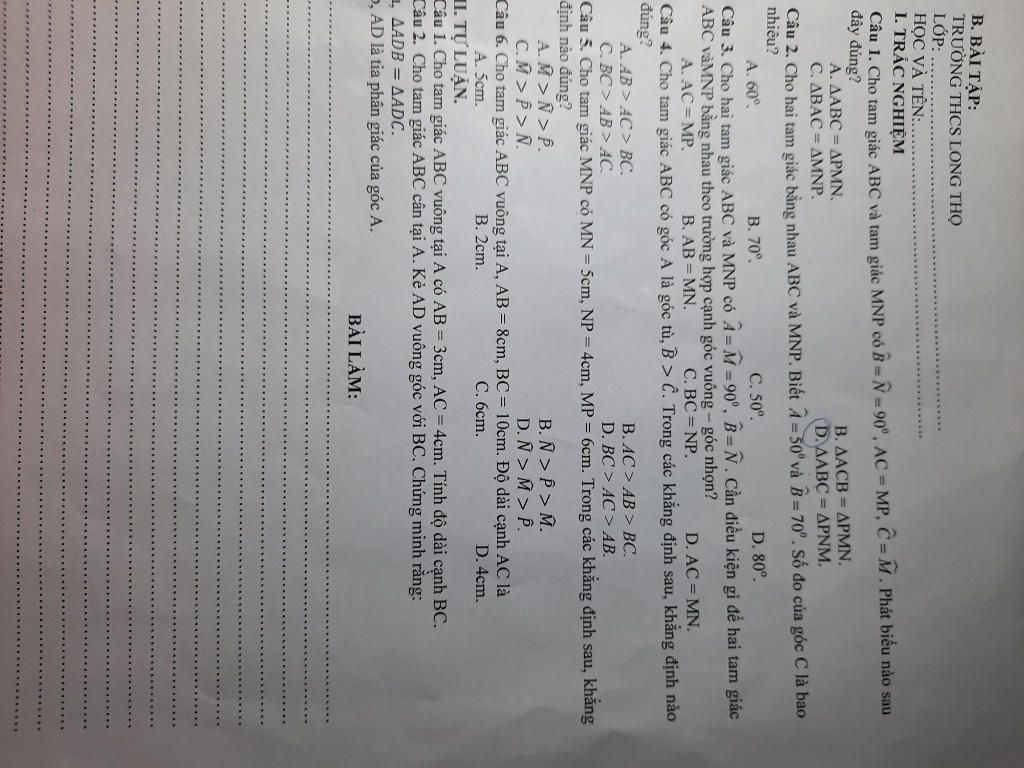 B. BÀI TẬP:
TRƯỜNG THCS LONG THỌ
LỚP: ..........................................................
HỌC VÀ TÊN:..........................................................
I. TRẮC NGHIỆM
Câu 1. Cho tam giác ABC và tam giác MNP có B̂ = N̂ = 90⁰, AC = MP, Ĉ = M̂. Phát biểu nào sau
đây đúng?
A. ΔABC = ΔPMN. B. ΔACB = ΔPMN.
C. ΔBAC = ΔMNP. D. ΔABC = ΔPNM.
Câu 2. Cho hai tam giác bằng nhau ABC và MNP. Biết Â = 50⁰ và B̂ = 70⁰. Số đo của góc C là bao
nhiêu?
A. 60⁰. B. 70⁰. C. 50⁰. D. 80⁰.
Câu 3. Cho hai tam giác ABC và MNP có Â = M̂ = 90⁰, B̂ = N̂. Cần điều kiện gì để hai tam giác
ABC vàMNP bằng nhau theo trường hợp cạnh góc vuông – góc nhọn?
A. AC = MP. B. AB = MN. C. BC = NP. D. AC = MN.
Câu 4. Cho tam giác ABC có góc A là góc tù, B̂ > Ĉ. Trong các khẳng định sau, khẳng định nào
đúng?
A. AB > AC > BC. B. AC > AB > BC.
C. BC > AB > AC. D. BC > AC > AB.
Câu 5. Cho tam giác MNP có MN = 5cm, NP = 4cm, MP = 6cm. Trong các khẳng định sau, khẳng
định nào đúng?
A. M̂ > N̂ > P̂. B. N̂ > P̂ > M̂.
C. M̂ > P̂ > N̂. D. N̂ > M̂ > P̂.
Câu 6. Cho tam giác ABC vuông tại A, AB = 8cm, BC = 10cm. Độ dài cạnh AC là
A. 5cm. B. 2cm. C. 6cm. D. 4cm.
II. TỰ LUẬN.
Câu 1. Cho tam giác ABC vuông tại A có AB = 3cm, AC = 4cm. Tính độ dài cạnh BC.
Câu 2. Cho tam giác ABC cân tại A. Kẻ AD vuông góc với BC. Chứng minh rằng:
a, ΔADB = ΔADC.
b, AD là tia phân giác của góc A.
BÀI LÀM: